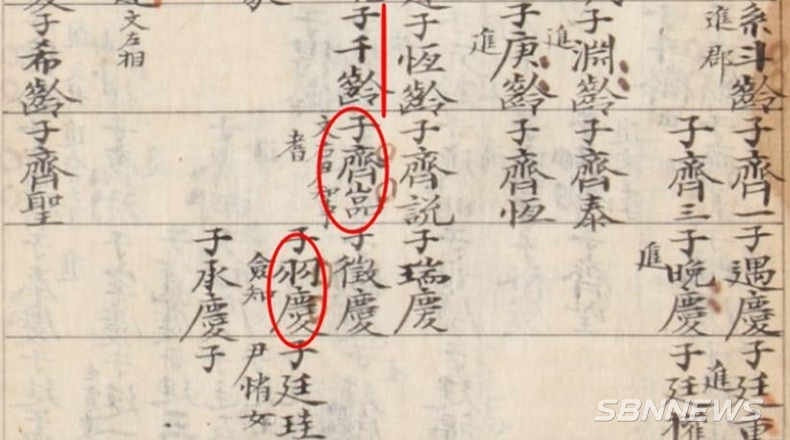 系斗齡
進郡
子淵齡
進
子庚齡
進
子恆齡
子千齡
文左相
子希齡
子齊一
子齊三
子齊泰
子齊恆
子齊説
子齊嵒
耆
子齊聖
子遇慶
子晩慶
進
子瑞慶
子徵慶
子羽慶
僉知
子承慶
子廷
進
子廷
子廷珪
尹
女
子
SBNNEWS